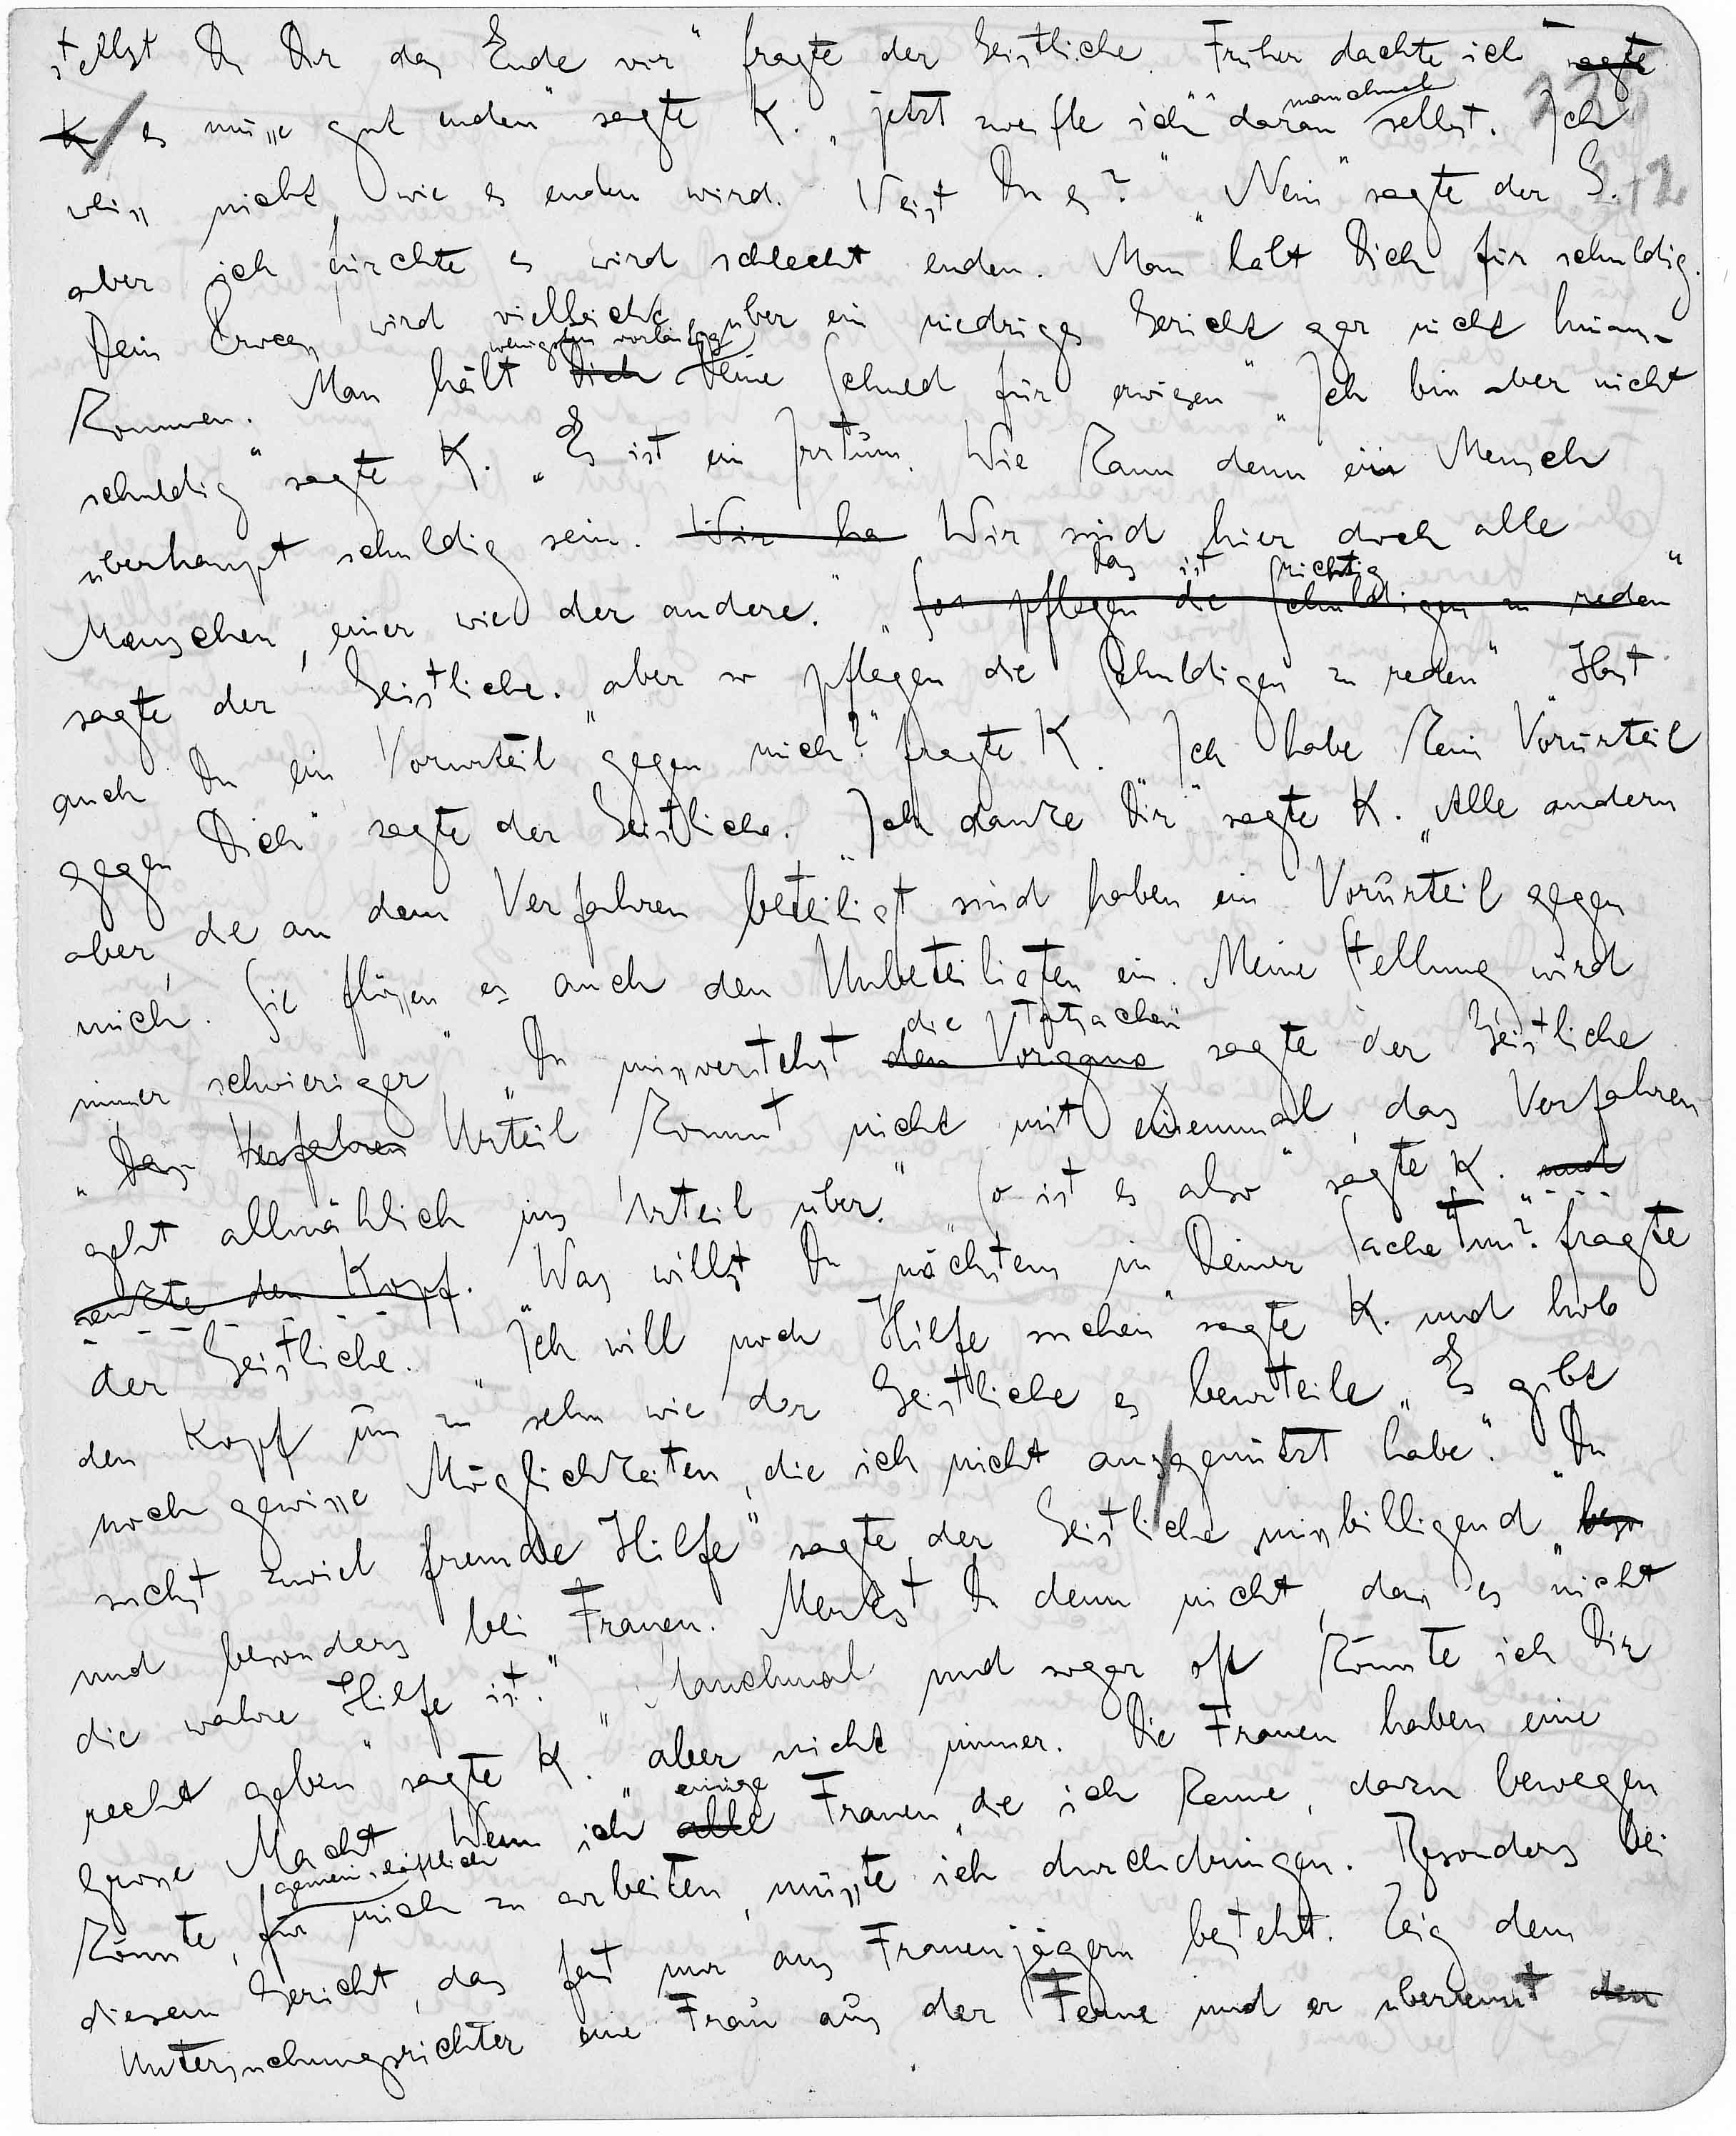 stellst Du Dir das Ende vor" fragte der Geistliche. Früher dachte ich sagte
K es müsse gut enden" sagte K. „jetzt zweifle ich daran manchmal selbst. Ich
weiss nicht, wie es enden wird. Weist Du es?" „Nein" sagte der G.
aber ich fürchte es wird schlecht enden. Man hält Dich für schuldig.
Dein Process wird vielleicht über ein niedriges Gericht gar nicht hinaus-
kommen. Man hält wenigstens vorläufig Dich Deine Schuld für erwiesen" „Ich bin aber nicht
schuldig" sagte K. „Es ist ein Irrtum. Wie kann denn ein Mensch
überhaupt schuldig sein. Wir ha Wir sind hier doch alle
Menschen, einer wie der andere." „Das ist richtig So pflegen die Schuldigen zu reden"
sagte der Geistliche. „aber so pflegen die Schuldigen zu reden" „Hast
auch Du ein Vorurteil gegen mich?" fragte K. Ich habe kein Vorurteil
gegen Dich" sagte der Geistliche. „Ich danke Dir" sagte K. „Alle andern
aber, die an dem Verfahren beteiligt sind haben ein Vorurteil gegen
mich. Sie flössen es auch den Unbeteiligten ein. Meine Stellung wird
immer schwieriger" „Du missverstehst die Tatsachen den Vorgang sagte der Geistliche
„Das Verfahren Urteil kommt nicht mit einemmal, das Verfahren
geht allmählich ins Urteil über." „So ist es also" sagte K. und
senkte den Kopf. „Was willst Du nächstens in Deiner Sache tun?" fragte
der Geistliche. „Ich will noch Hilfe suchen" sagte K. und hob
den Kopf um zu sehn wie der Geistliche es beurteile „Es gibt
noch gewisse Möglichkeiten, die ich nicht ausgenützt habe". „Du
suchst zuviel fremde Hilfe" sagte der Geistliche missbilligend „beso
und besonders bei Frauen. Merkst Du denn nicht, dass es nicht
die wahre Hilfe ist." „Manchmal und sogar oft könnte ich Dir
recht geben" sagte K. „aber nicht immer. Die Frauen haben eine
grosse Macht. Wenn ich einige alle Frauen, die ich kenne, dazu bewegen
könnte, gemeinschaftlich für mich zu arbeiten, müsste ich durchdringen. Besonders bei
diesem Gericht, das fast nur aus Frauenjägern besteht. Zeig dem
Untersuchungsrichter eine Frau aus der Ferne und er überrennt den